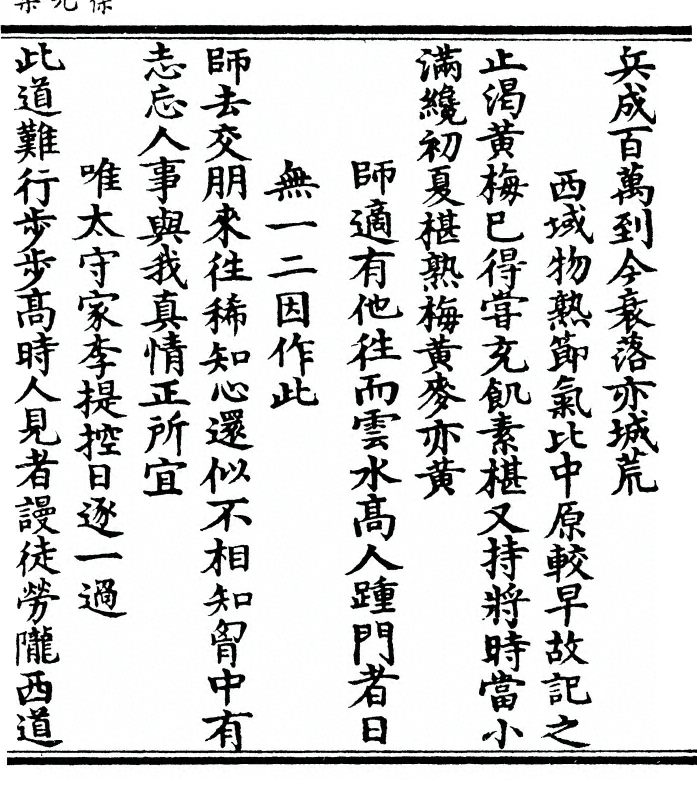 兵成百萬到今衰落亦城荒
西域物熟節氣比中原較早故記之
止渴黃梅巳得嘗充飢素椹又持將時當小
滿纔初夏椹熟梅黃麥亦黃
師適有他徃而雲水髙人踵門者日
無一二因作此
師去交朋來徃稀知心還似不相知胷中有
志忘人事與我真情正所宜
唯太守家李提控日逐一過
此道難行步步髙時人見者謾徒勞隴西道